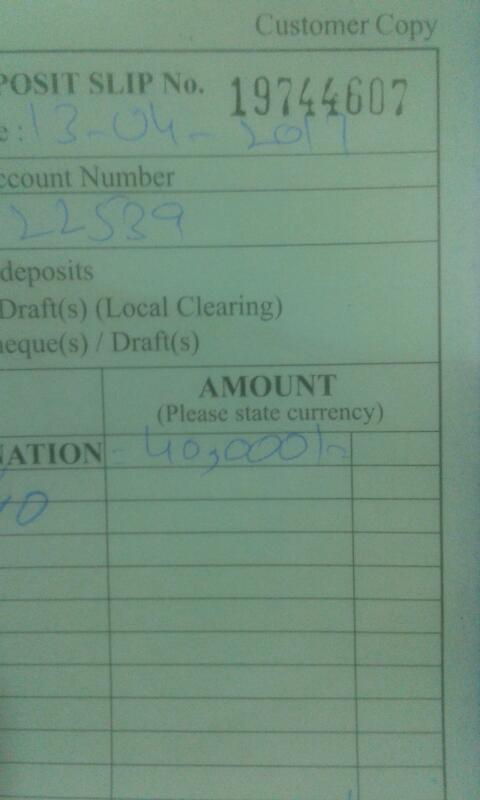 Customer Copy
POSIT SLIP No. 19744607
e : 13-04-2017
ccount Number
22539
deposits
Draft(s) (Local Clearing)
heque(s) / Draft(s)
AMOUNT
(Please state currency)
NATION 40,000/=